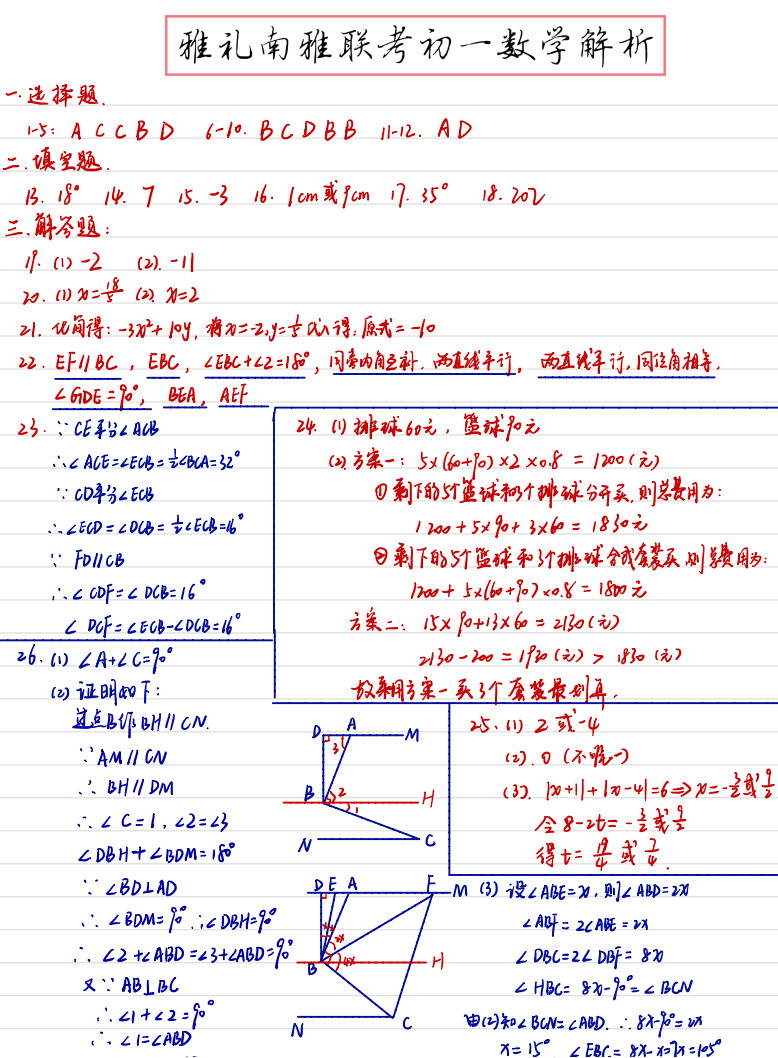 雅礼南雅联考初一数学解析
一.选择题.
1-5: A C C B D 6-10. B C D B B 11-12. A D
二.填空题.
13. 18° 14. 7 15. -3 16. 1cm或9cm 17. 35° 18. 202
三.解答题:
19. (1) -2 (2). -11
20. (1) x=18/5 (2) x=2
21. 化简得: -3x²+10y, 将x=-2,y=1/5代入得:原式=-10
22. EF∥BC, EBC, ∠EBC+∠2=180°, 同旁内角互补.两直线平行, 两直线平行,同位角相等.
∠GDE=90°, BEA, AEF
23. ∵ CE平分∠ACB
∴∠ACE=∠ECB=1/2∠BCA=32°
∵ CD平分∠ECB
∴∠ECD=∠DCB=1/2∠ECB=16°
∵ FD∥CB
∴∠CDF=∠DCB=16°
∠DCF=∠ECB-∠DCB=16°
24. (1) 排球60元, 篮球90元
(2) 方案一: 5×(60+90)×2×0.8=1200(元)
① 剩下的5个篮球和3个排球分开买,则总费用为:
1200+5×90+3×60=1830元
② 剩下的5个篮球和3个排球合成套装买,则总费用为:
1200+5×(60+90)×0.8=1800元
方案二: 15×90+13×60=2130(元)
2130-200=1930(元)>1830(元)
故采用方案一买3个套装最划算.
25. (1) 2或-4
(2). 0 (不唯一)
(3). |x+1|+|x-4|=6⇒x=-3/2或9/2
令8-2t=-3/2或9/2
得t=19/4或7/4.
26. (1) ∠A+∠C=90°
(2) 证明如下:
过点B作BH∥CN.
∵AM∥CN
∴BH∥DM
∴∠C=1,∠2=∠3
∠DBH+∠BDM=180°
∵∠BD⊥AD
∴∠BDM=90° ∴∠DBH=90°
∴∠2+∠ABD=∠3+∠ABD=90°
又∵AB⊥BC
∴∠1+∠2=90°
∴∠1=∠ABD
D A M
3
B 2 H
1
N C
D E A F M
x 2x
B 4x H
N C
(3) 设∠ABE=x,则∠ABD=2x
∠ABF=2∠ABE=2x
∠DBC=2∠DBF=8x
∠HBC=8x-90°=∠BCN
由(2)知∠BCN=∠ABD. ∴8x-90°=2x
x=15°. ∠EBC=8x-x=7x=105°